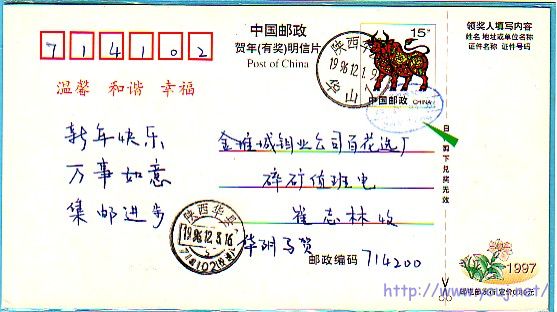 714102
中国邮政
贺年(有奖)明信片
Post of China
15分
中国邮政 CHINA
领奖人填写内容
姓名 地址或单位名称
证件名称 证件号码
温馨 和谐 幸福
陕西
1996.12.1.9
华山
新年快乐
万事如意
集邮进步
金堆城钼业公司百花选厂
碎矿值班电
崔志林收
华明马贺
邮政编码 714200
陕西华县
1996.12.3.16
剪下兑奖无效
1997
http://www.